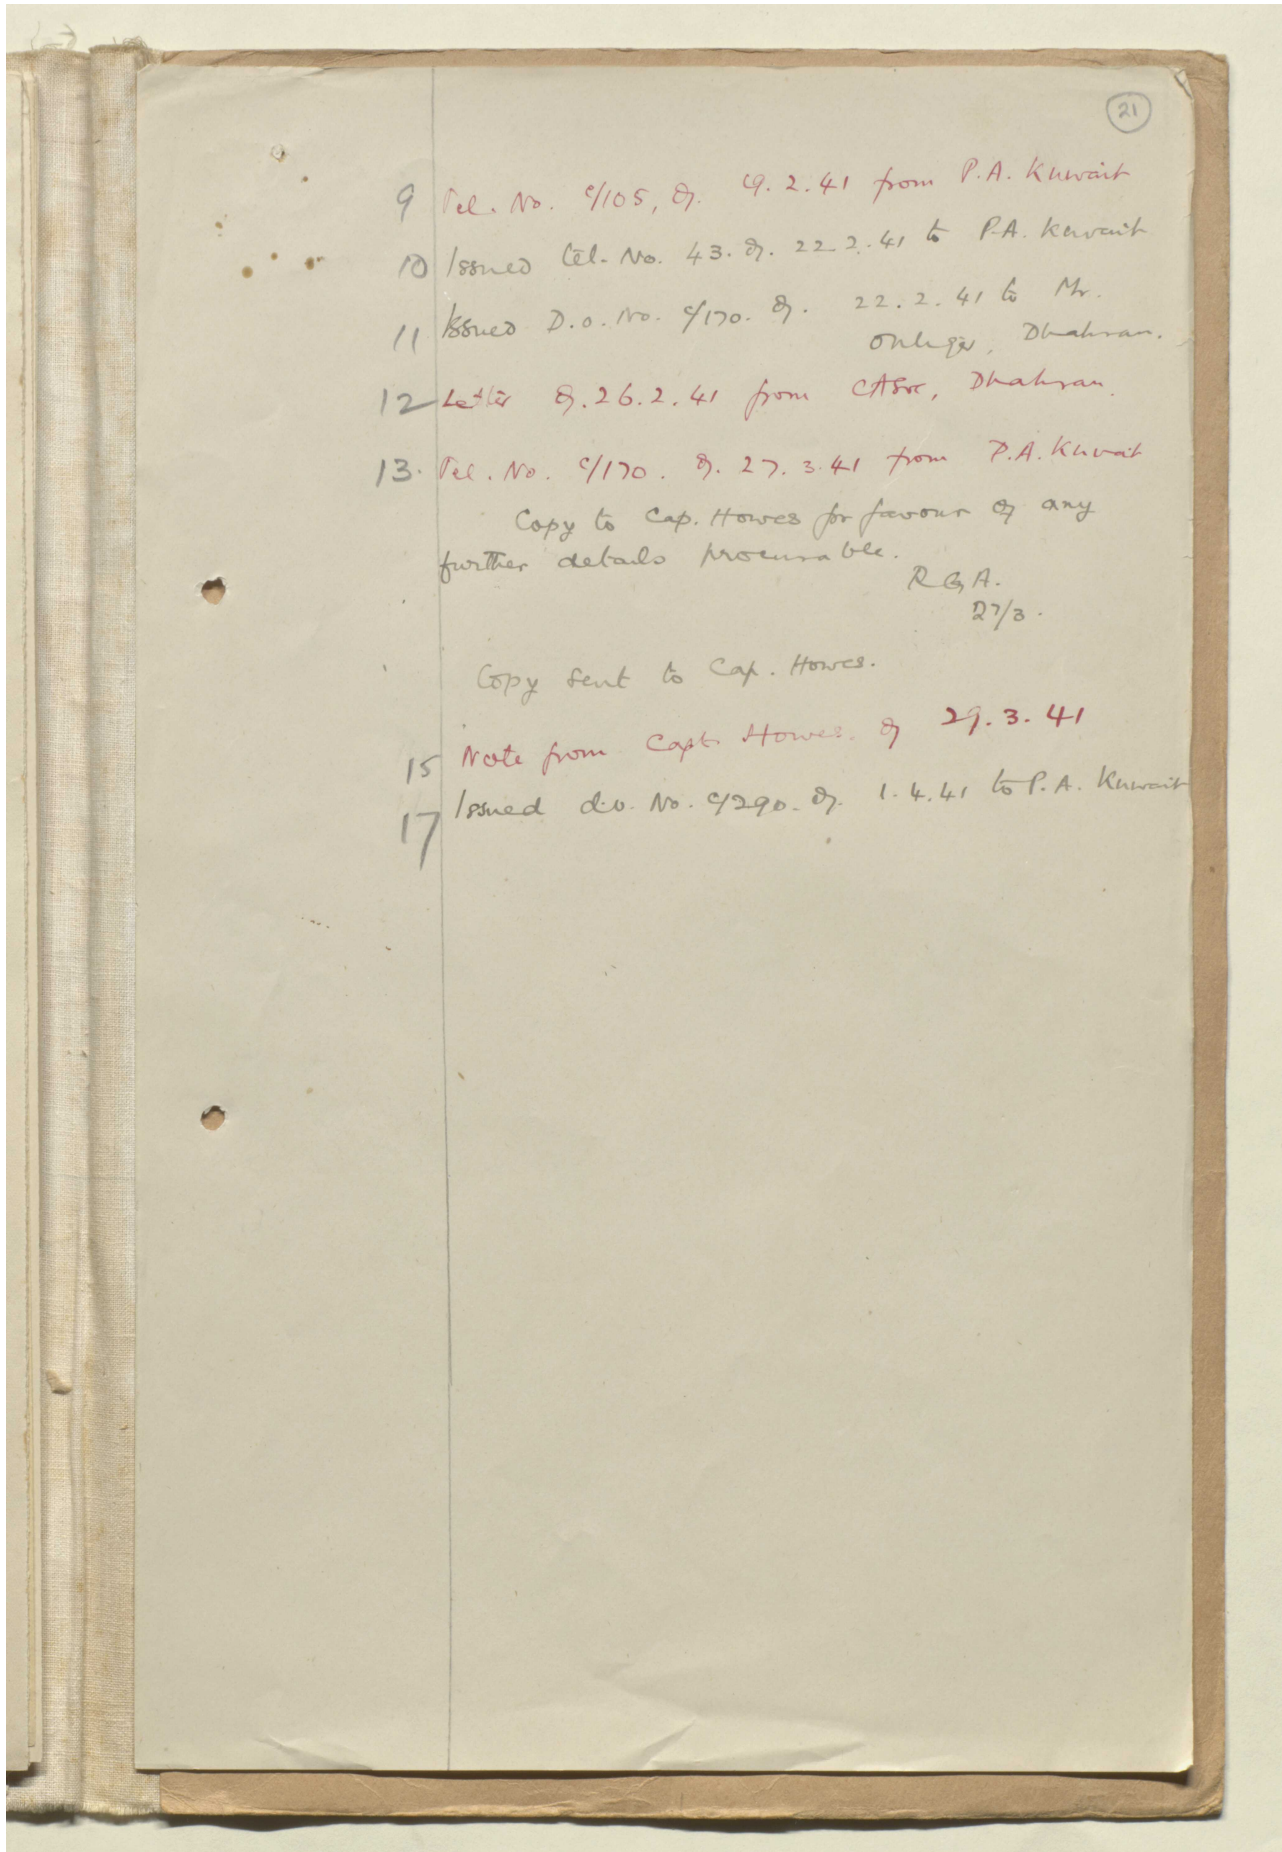 21
9 Tel. No. C/105, of 19.2.41 from P.A. Kuwait
10 Issued tel. No. 43. of. 22.2.41 to P.A. Kuwait
11 Issued D.o. No. C/170. of. 22.2.41 to Mr.
Ohliger, Dhahran.
12 Letter of. 26.2.41 from CASOC, Dhahran.
13. Tel. No. C/170. of. 27.3.41 from P.A. Kuwait
Copy to Cap. Howes for favour of any
further details procurable.
R G A.
27/3.
Copy sent to Cap. Howes.
15 Note from Capt. Howes. of 29.3.41
17 Issued d.o. No. C/290. of. 1.4.41 to P.A. Kuwait